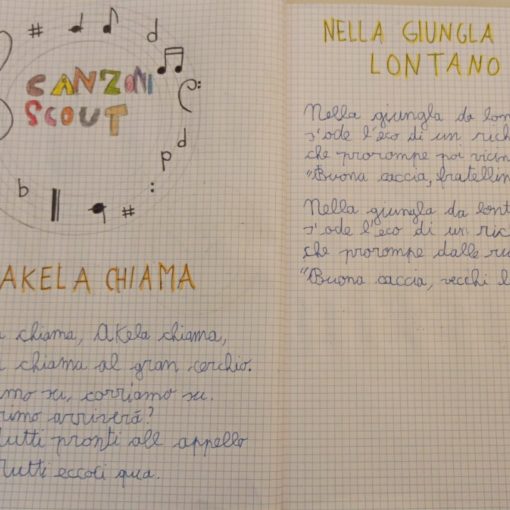 CANZONI
SCOUT
AKELA CHIAMA
chiama, Akela chiama,
chiama al gran cerchio.
su, corriamo su.
arriverá?
tutti pronti all appello
tutti eccoli qua.
NELLA GIUNGLA
LONTANO
Nella giungla da
s'ode l'eco di un
che prorompe poi
"Buona caccia,
Nella giungla da
s'ode l'eco di un
che prorompe dalle
"Buona caccia, vecchi